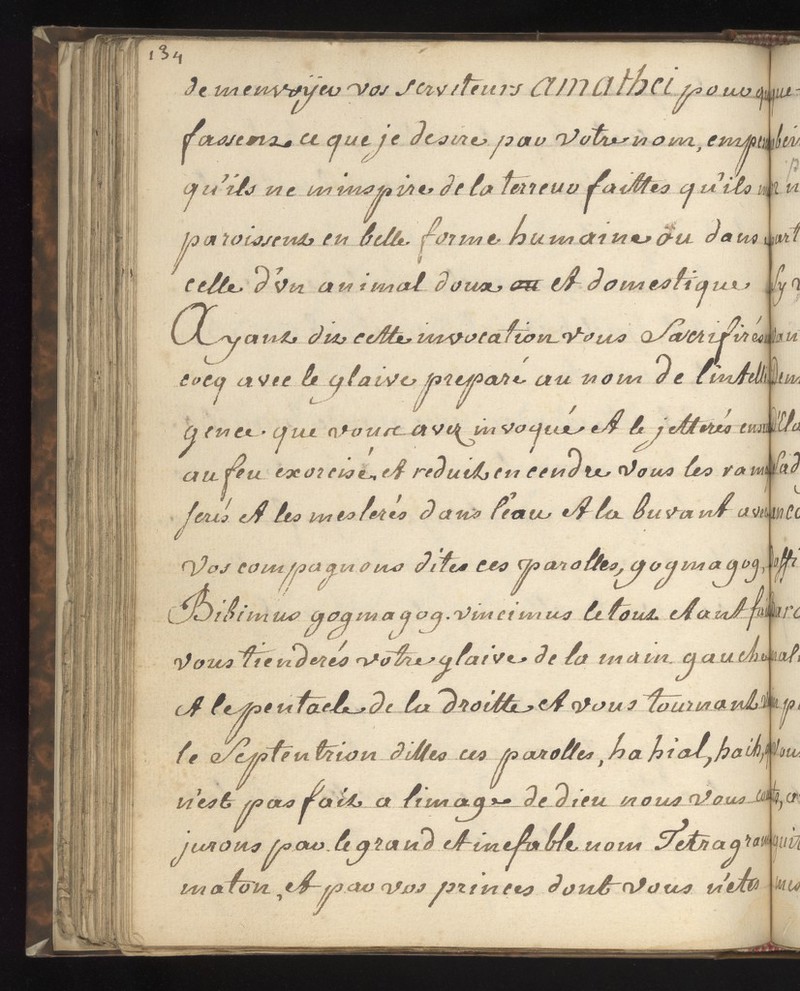 134
de menvoÿer vos serviteurs amathei pour q
fassent ce que je desire par votre nom, empe
qu'ils ne minspire de la terreur faittes qu'ils m
paroissent en belle forme humaine ou dans
celle d'vn animal doux ou et domestique
Ayant dit cette invocation vous Sacrifirés
cocq avec le glaive preparé au nom de lintelli
gence que vous avez invoqué et le jetterés ensu
au feu exorcisé, et reduit en cendre vous les ram
serés et les meslerés dans l'eau et la buvant avec
vos compagnons dites ces parolles, gogmagog,
Bibimus gogmagog. vincimus le tout etant fa
vous tienderés votre glaive de la main gauche
et le pentacle de la droitte et vous tournant v
le Septentrion dittes ces parolles, ha hial, haih, q
n'est pas fait a limage de dieu nous vous con
jurons par le grand et inefable nom Tetragram
maton, et par vos princes dont vous n'etes